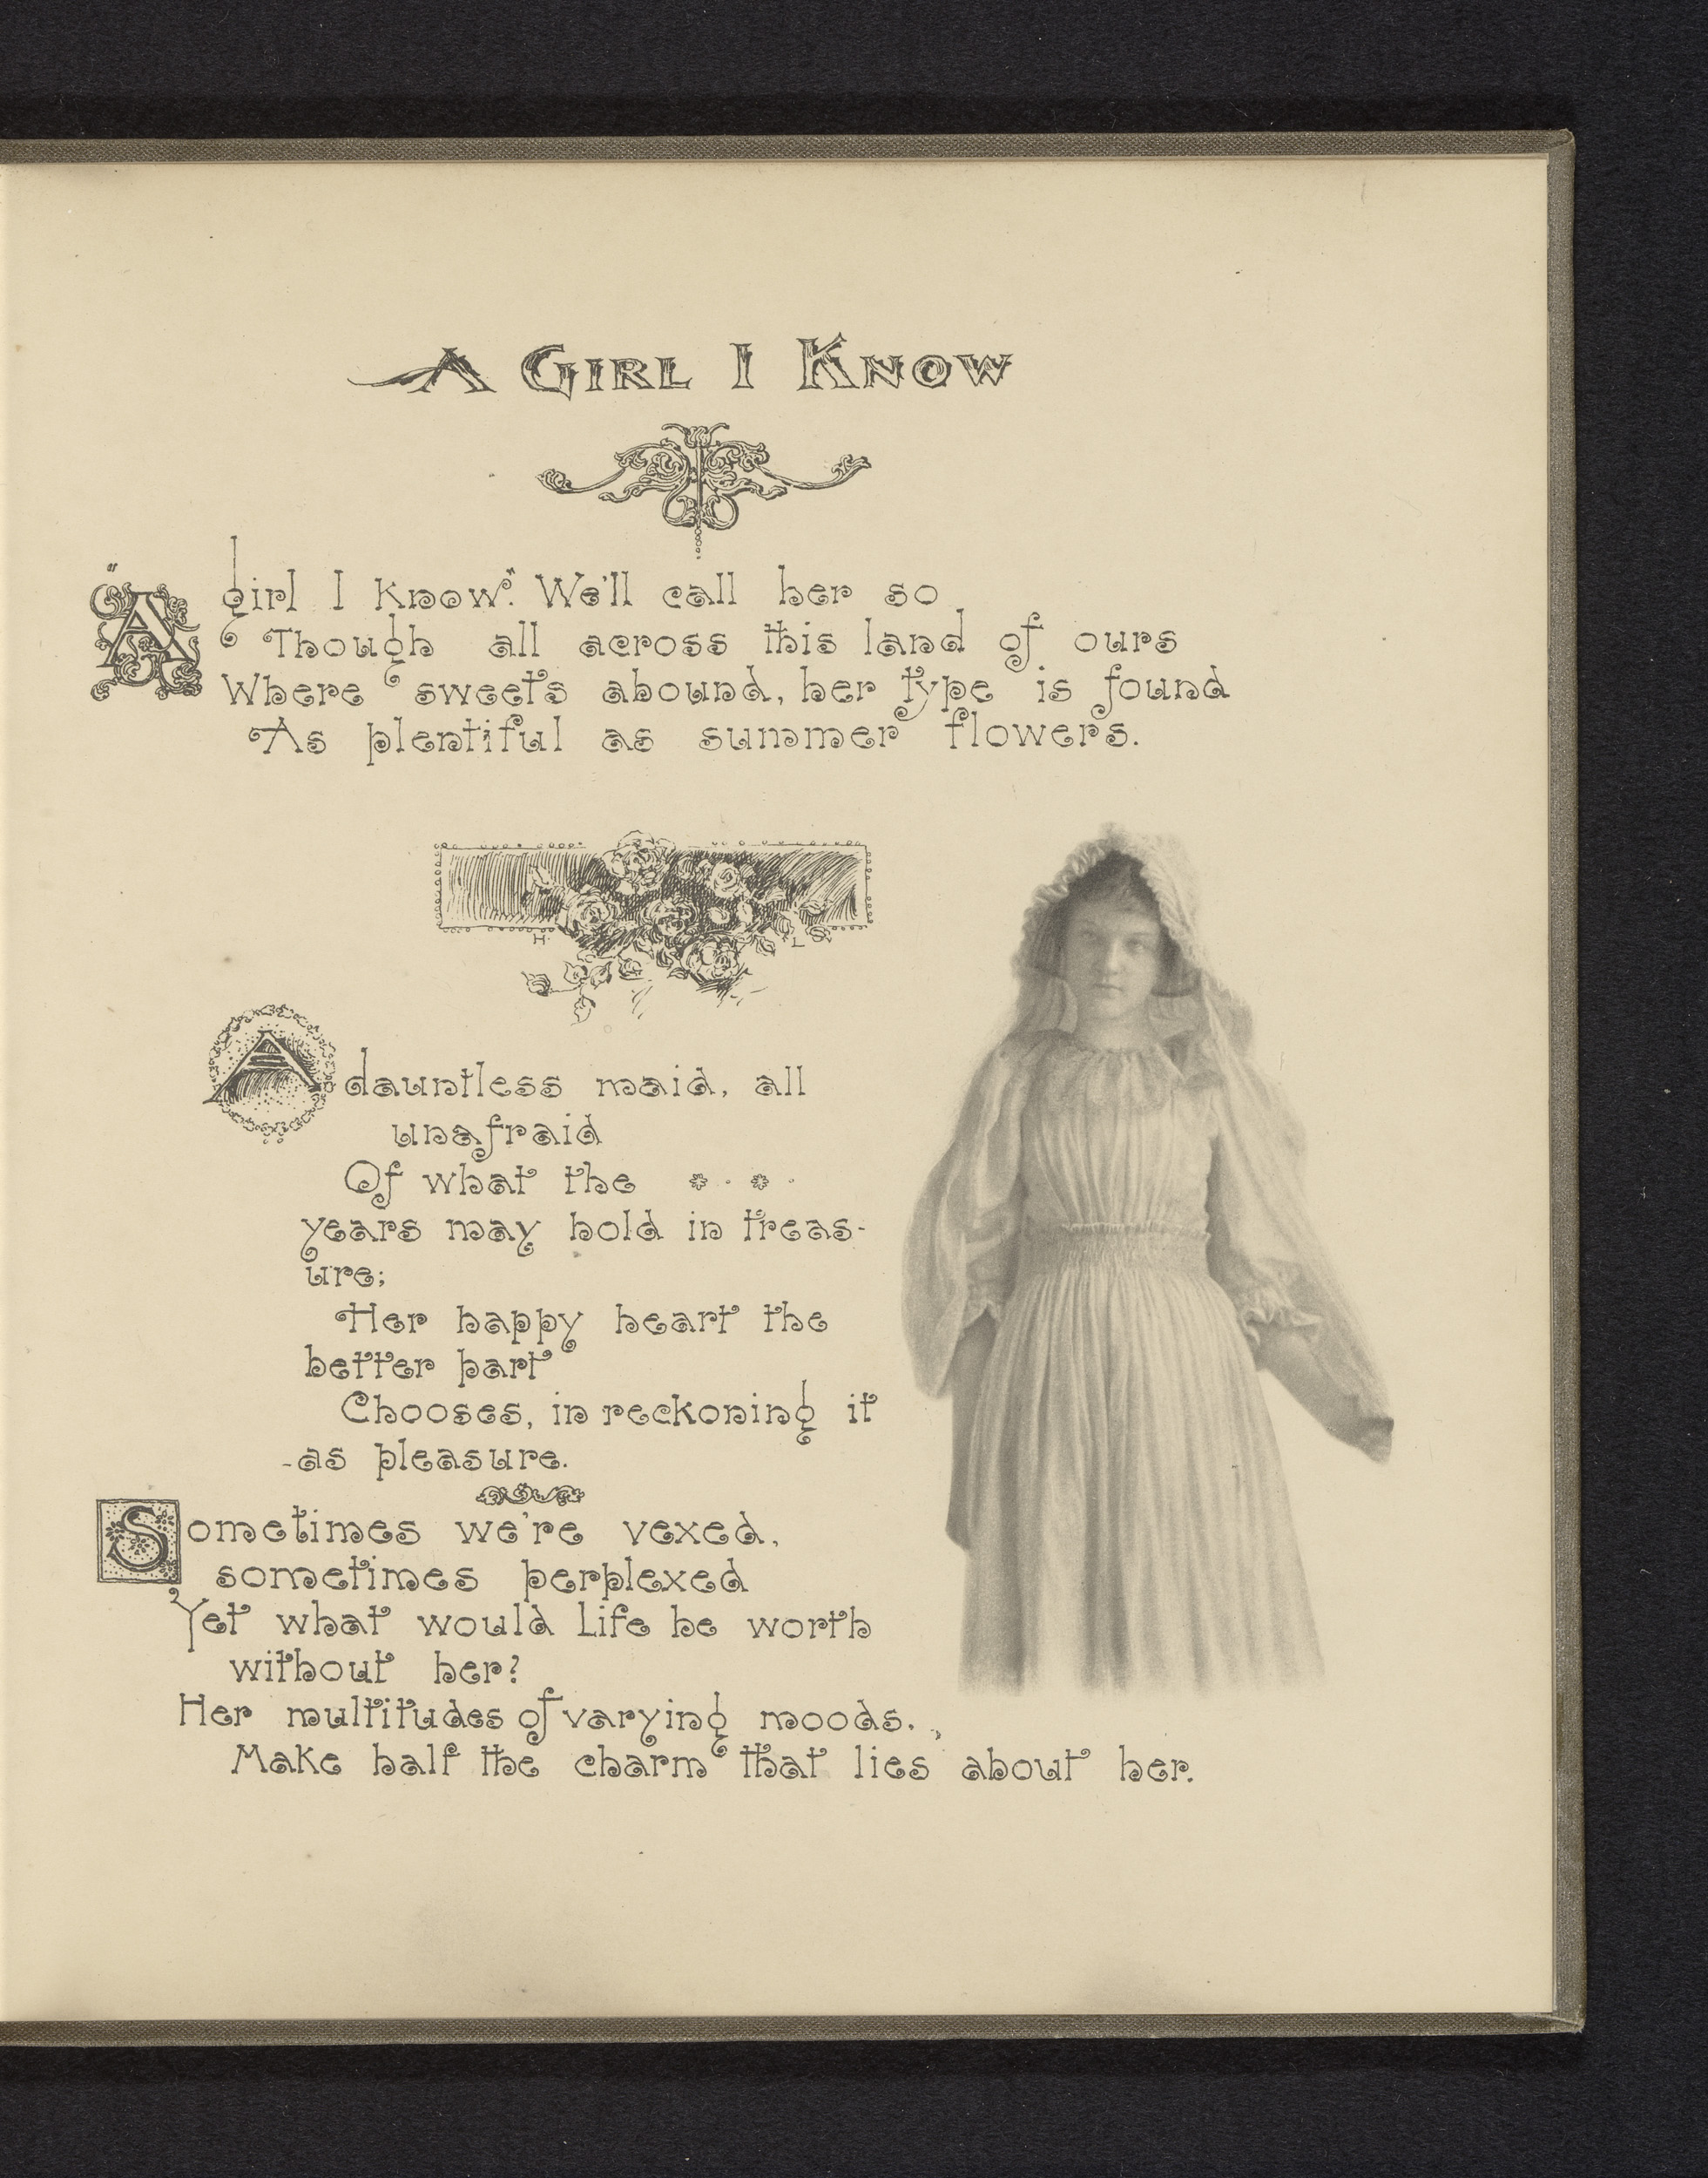 A GIRL I KNOW
"A girl I Know". We'll call her so
Though all across this land of ours
Where sweets abound, her type is found
As plentiful as summer flowers.
H. L
A dauntless maid, all
unafraid
Of what the
years may hold in treas-
ure;
Her happy heart the
better part
Chooses, in reckoning it
-as pleasure.
Sometimes we're vexed,
sometimes perplexed
Yet what would Life be worth
without her?
Her multitudes of varying moods.
Make half the charm that lies about her.